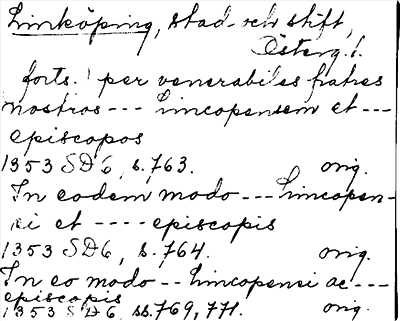 Linköping, stad och stift,
Österg. l.
forts. per venerabiles fratres
nostros --- Lincopensem et ---
episcopos
1353 SD6, s. 763. orig.
In eodem modo --- Lincopen-
si et ---- episcopis
1353 SD6, s. 764. orig.
In eo modo -- Lincopensi ac ---
episcopis
1353 SD6, ss. 769, 771. orig.